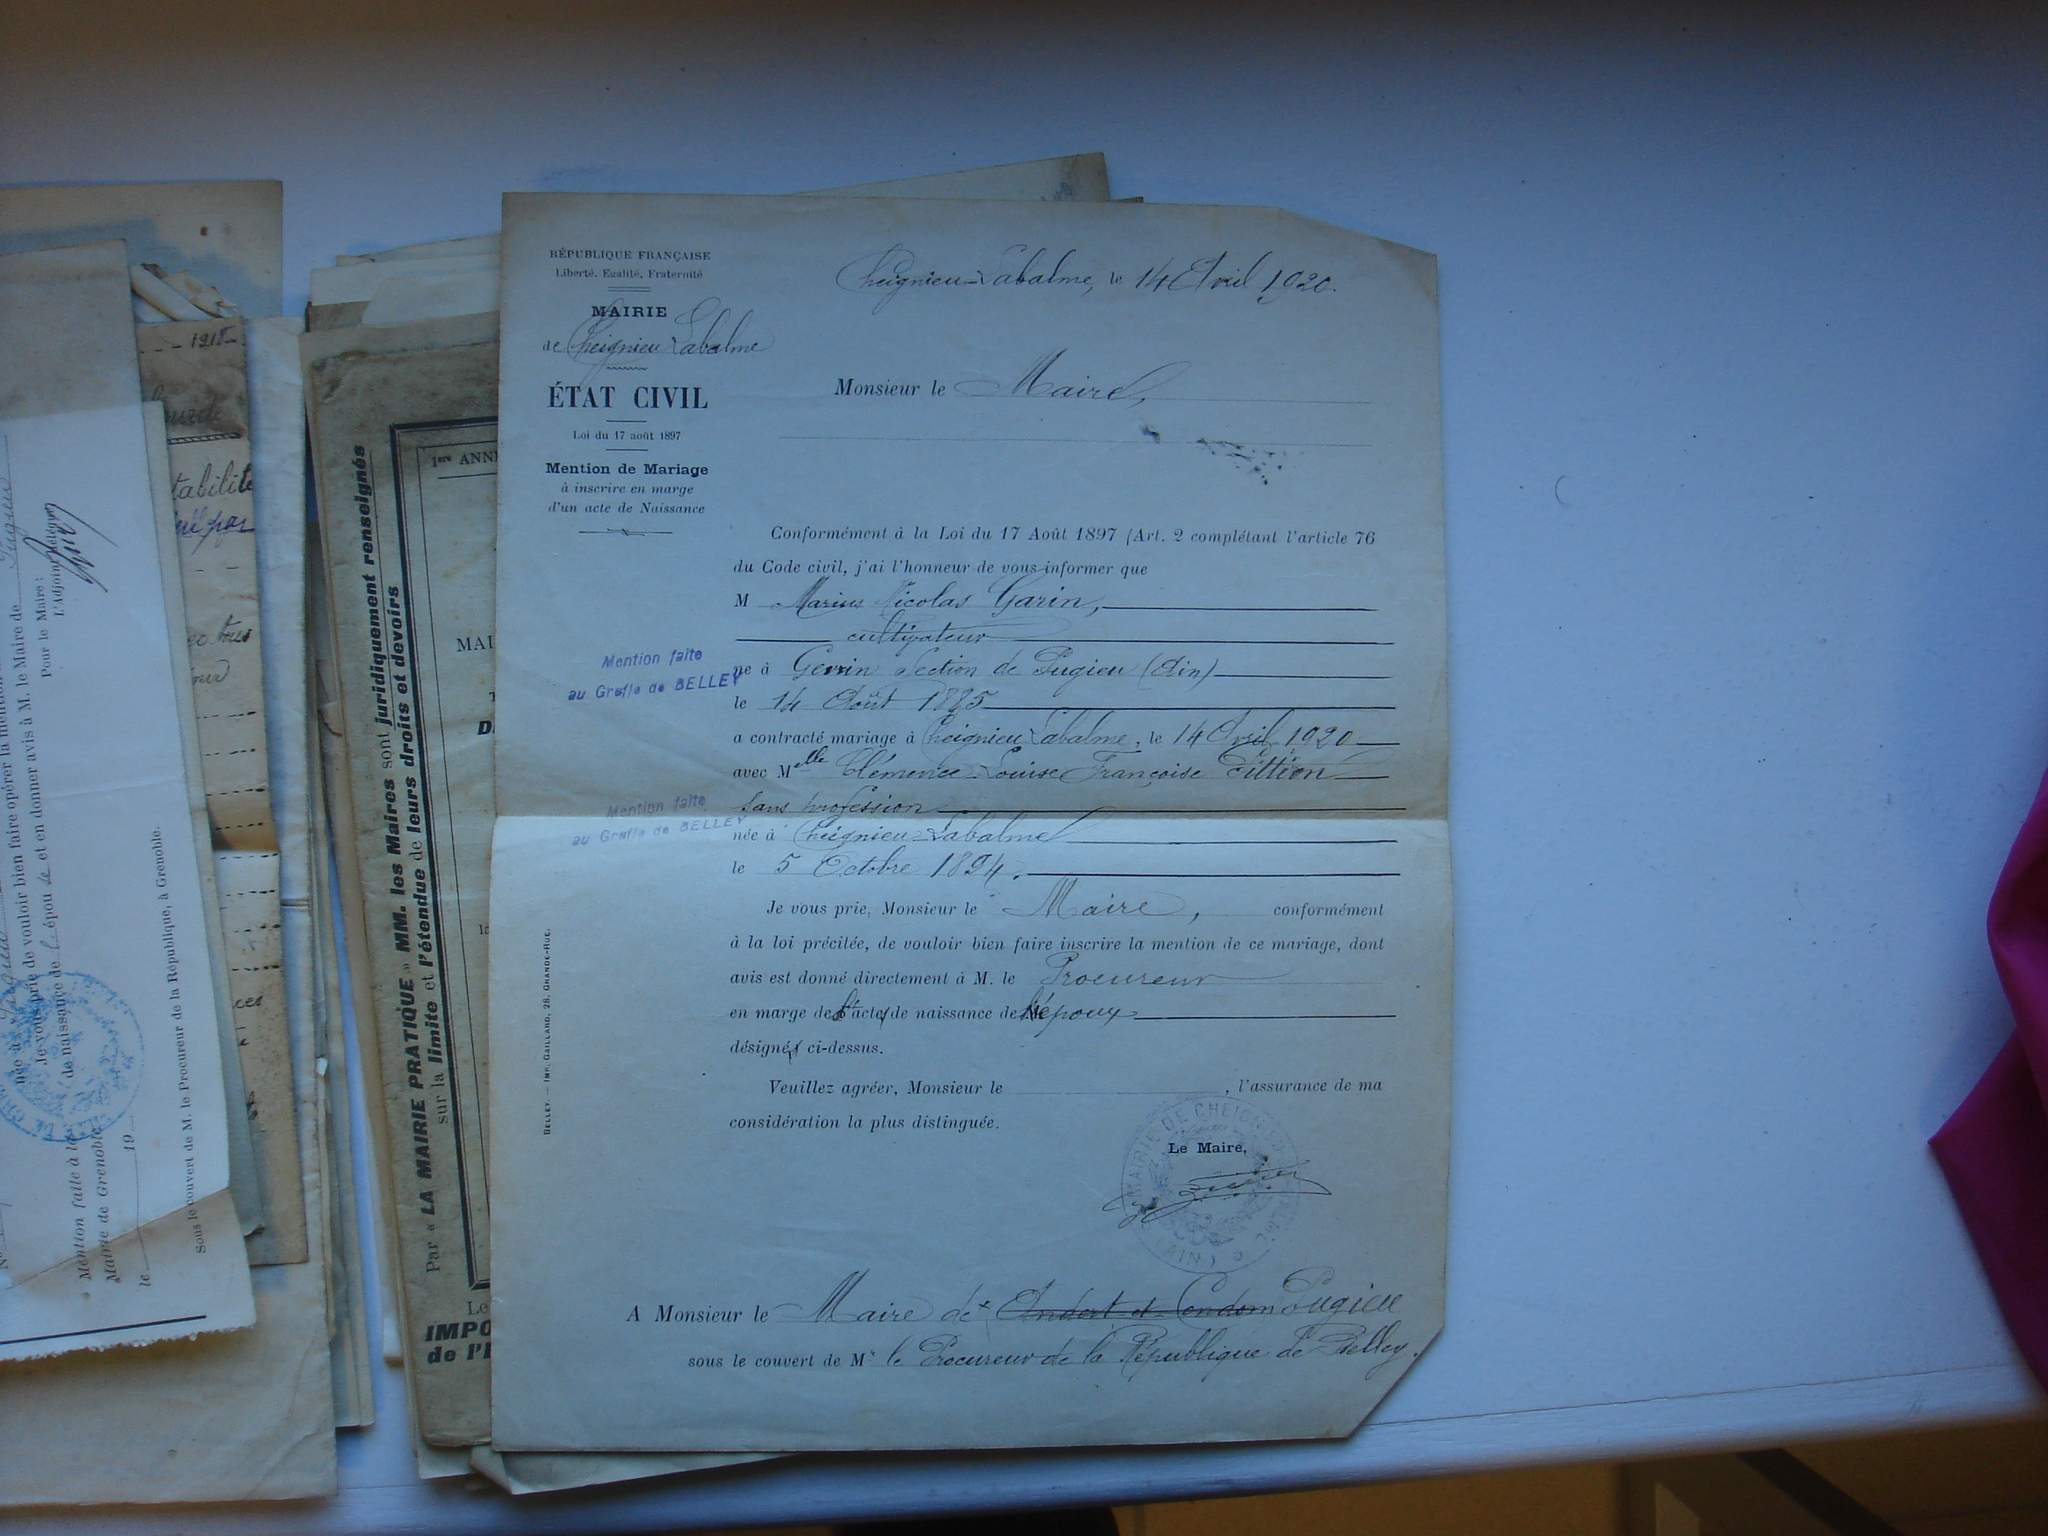 RÉPUBLIQUE FRANÇAISE
Liberté, Egalité, Fraternité
MAIRIE
de Cheignieu Labalme
ÉTAT CIVIL
Loi du 17 août 1897
Mention de Mariage
à inscrire en marge
d'un acte de Naissance
Cheignieu-Labalme, le 14 Avril 1920.
Monsieur le Maire,
Conformément à la Loi du 17 Août 1897 (Art. 2 complétant l'article 76
du Code civil, j'ai l'honneur de vous informer que
M Marius Nicolas Garin,
cultivateur
né à Gevrin Section de Pugieu (Ain)
le 14 Août 1885
a contracté mariage à Cheignieu Labalme, le 14 Avril 1920
avec Melle Clémence Louise Françoise Tittion
sans profession
née à Cheignieu-Labalme
le 5 Octobre 1894.
Je vous prie, Monsieur le Maire, conformément
à la loi précitée, de vouloir bien faire inscrire la mention de ce mariage, dont
avis est donné directement à M. le Procureur
en marge de l'acte de naissance de l'époux
désigné ci-dessus.
Veuillez agréer, Monsieur le , l'assurance de ma
considération la plus distinguée.
Le Maire,
MAIRIE DE CHEIGNIEU
(AIN)
A Monsieur le Maire de Andert et Condom Pugieu
sous le couvert de Mr le Procureur de la République de Belley.
Mention faite
au Greffe de BELLEY
Mention faite
au Greffe de BELLEY
BELLEY. — IMP. GAILLARD, 28, GRANDE-RUE.
Par « LA MAIRIE PRATIQUE » MM. les Maires sont juridiquement renseignés
sur la limite et l'étendue de leurs droits et devoirs
1ere ANN
MAI
D
Le
IMPO
de l'
1918
tabilité
née à Pugieu
Je vous prie de vouloir bien faire opérer la mention
de naissance de l'épou se et en donner avis à M. le Maire de Pugieu
Pour le Maire :
L'Adjoint délégué
Mention faite à la
Mairie de Grenoble
le 19
Sous le couvert de M. le Procureur de la République, à Grenoble.